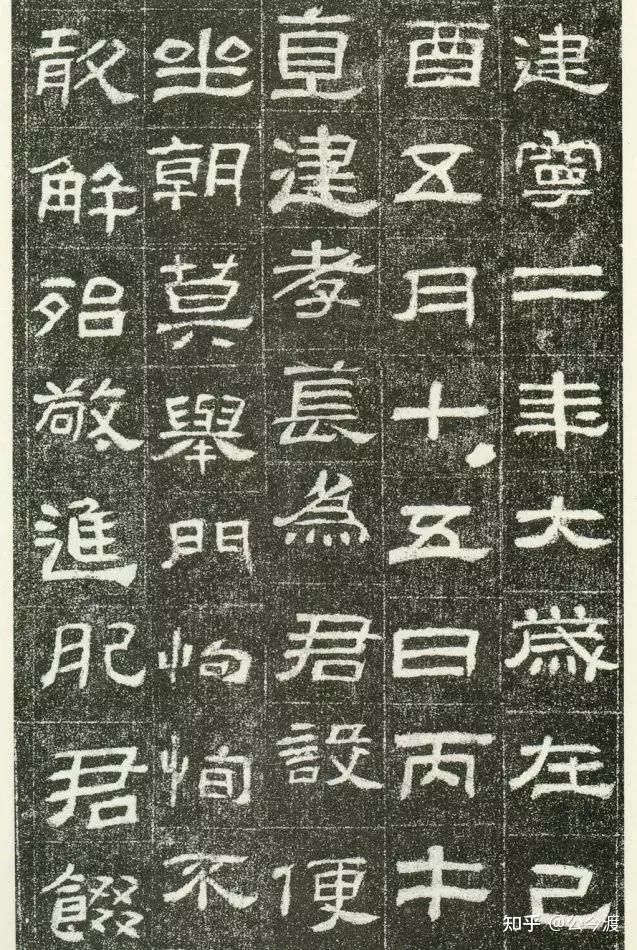 建寧二年大歲在己
酉五月十五日丙午
直建孝萇為君設便
坐朝莫舉門恂恂不
敢解殆敬進肥君餟
知乎 @公今渡